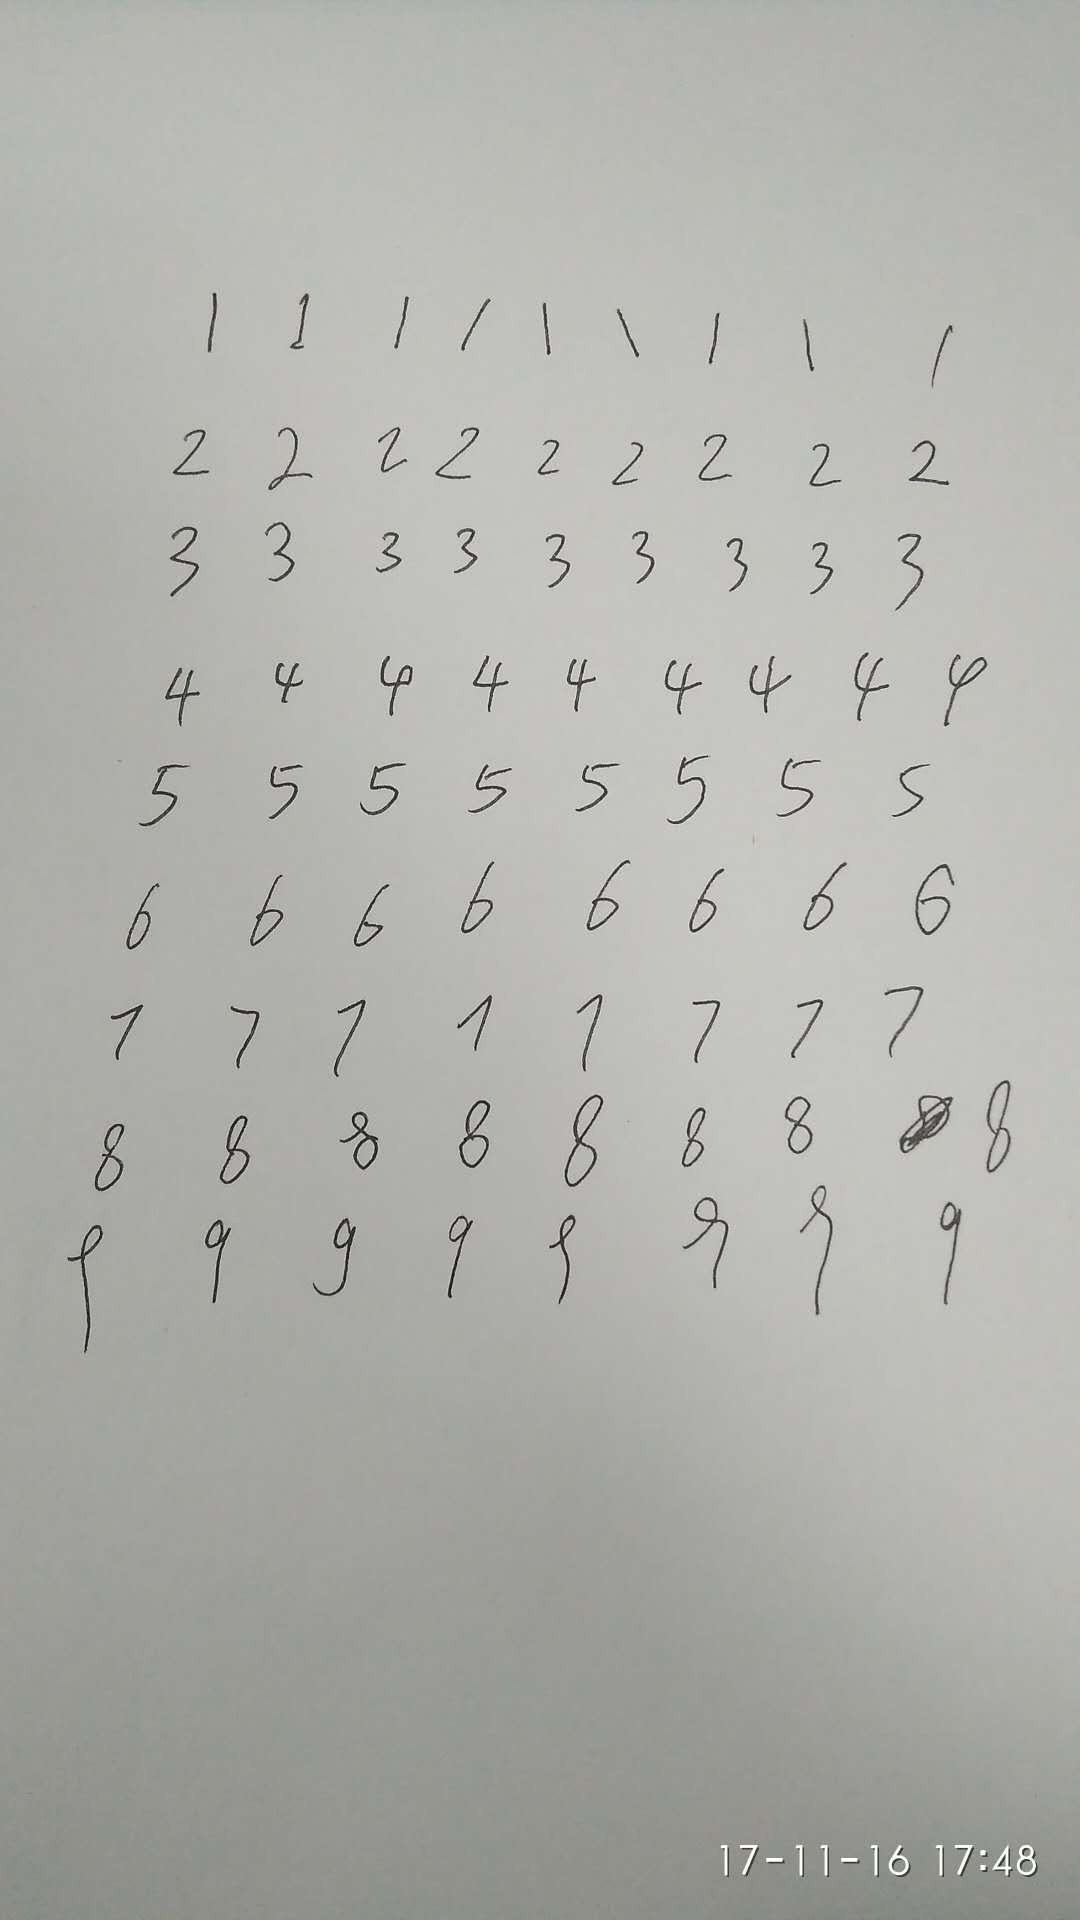 1 1 1 1 1 1 1 1 1
2 2 2 2 2 2 2 2 2
3 3 3 3 3 3 3 3 3
4 4 4 4 4 4 4 4 4
5 5 5 5 5 5 5 5
6 6 6 6 6 6 6 6
7 7 7 7 7 7 7 7
8 8 8 8 8 8 8 8
9 9 9 9 9 9 9 9
17-11-16 17:48